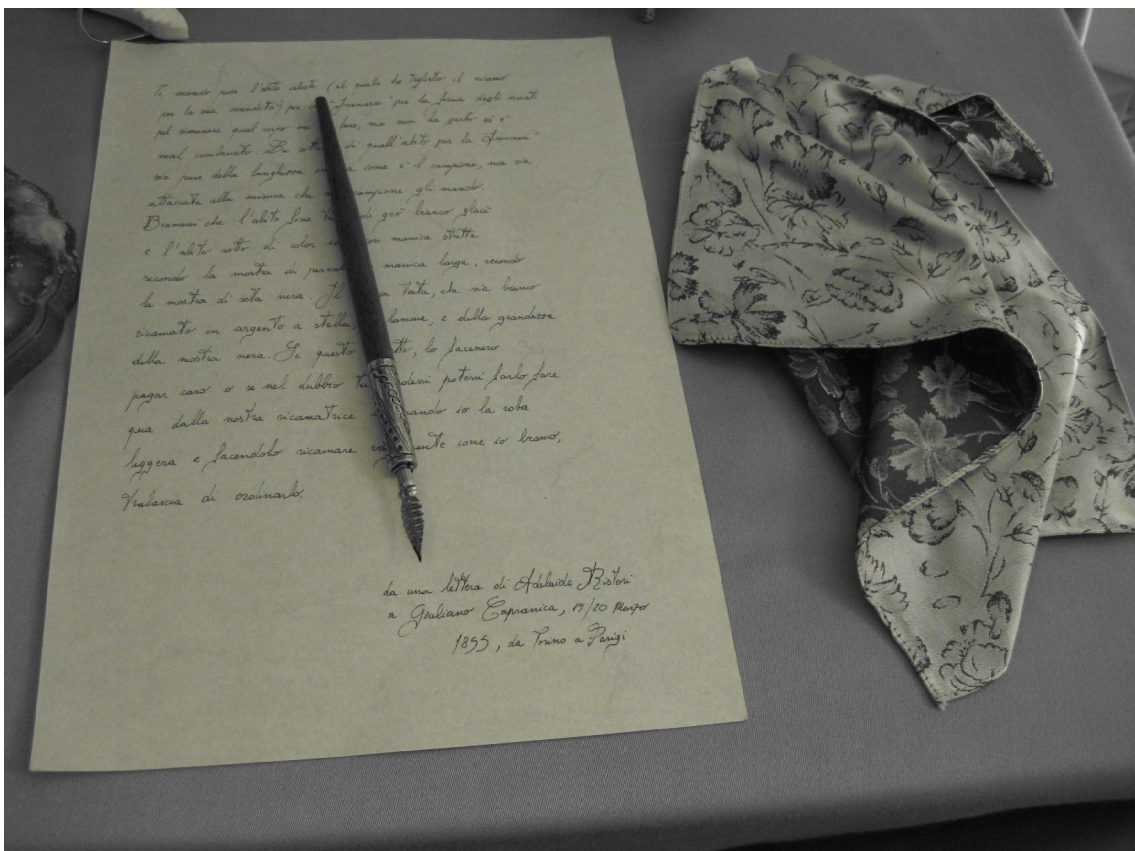 Ti mando pure l'abito alzato (al quale ho tagliato il ricamo
per la sua vendita) per "Francesca" per la forma degli
pel rimanere quel capo va bene, ma non ha garbo ed è
mal combinato. Ba di quell'abito per la "Francesca"
sia pure della lunghezza come è il campione, ma sia
attaccata alla misura che campione gli mando.
Bramerei che l'abito fosse di grò bianco glacé
e l'abito sotto di color con manica stretta
secondo la mostra di manica large, secondo
la mostra di seta nera. Il in testa, che sia bianco
ricamato in argento a stella, lamare, e della grandezze
della mostra nera. Se questo lo facessero
pagar caro o se nel dubbio potessi farlo fare
qua dalla nostra ricamatrice mandando io la roba
leggera e facendolo ricamare come io bramo,
tralascia di ordinarlo.
da una lettera di Adelaide Ristori
a Giuliano Capranica, 19/20 Marzo
1855, da Torino a Parigi